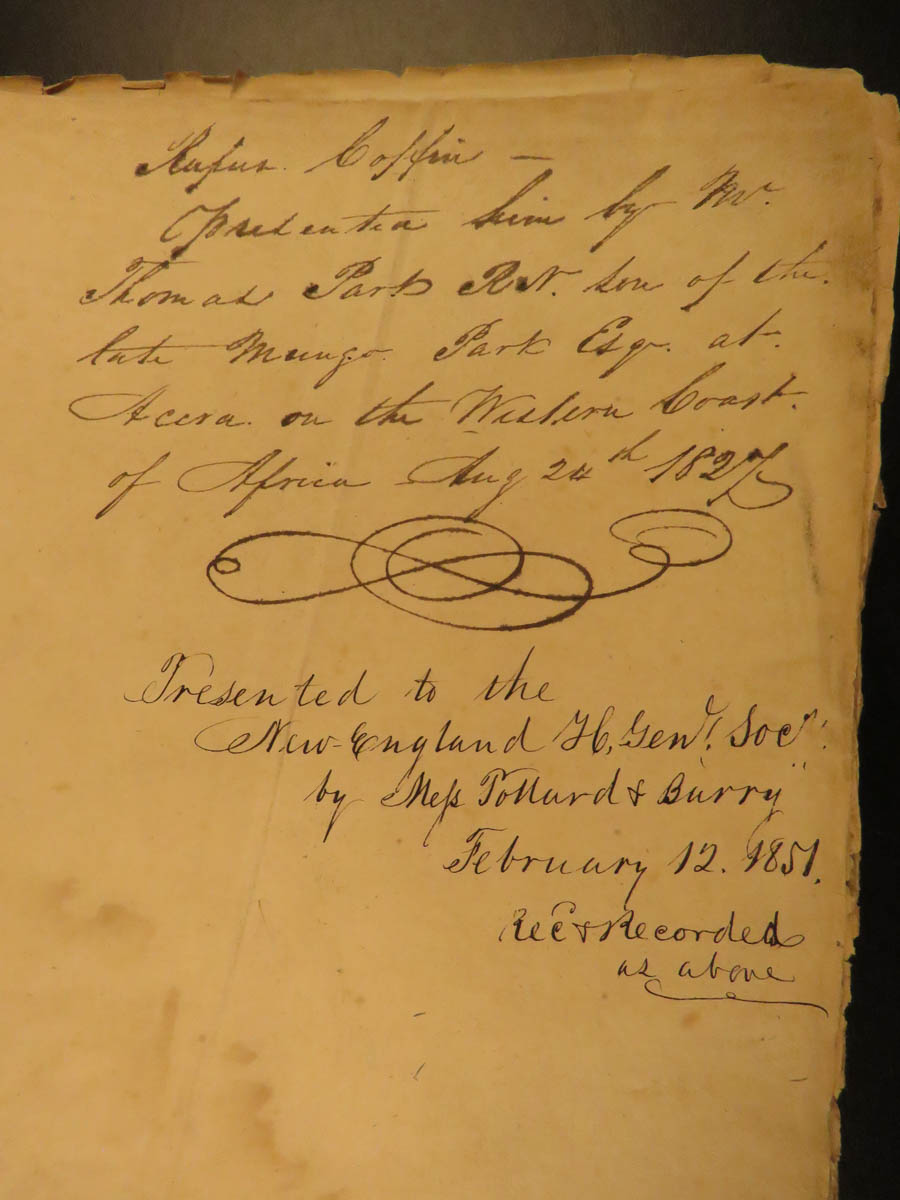 Rufus. Coffin —
Presented him by Mr.
Thomas Park R.N. son of the
late Mungo. Park Esqr. at.
Accra. on the Western Coast.
of Africa Aug 24th 1827
Presented to the
New-England H. Genl. Socy.
by Mess Tollard & Burry
February 12. 1851.
Recd & Recorded
as above